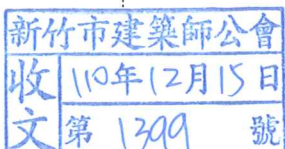 新竹市建築師公會
收文
110年12月15日
第 1399 號